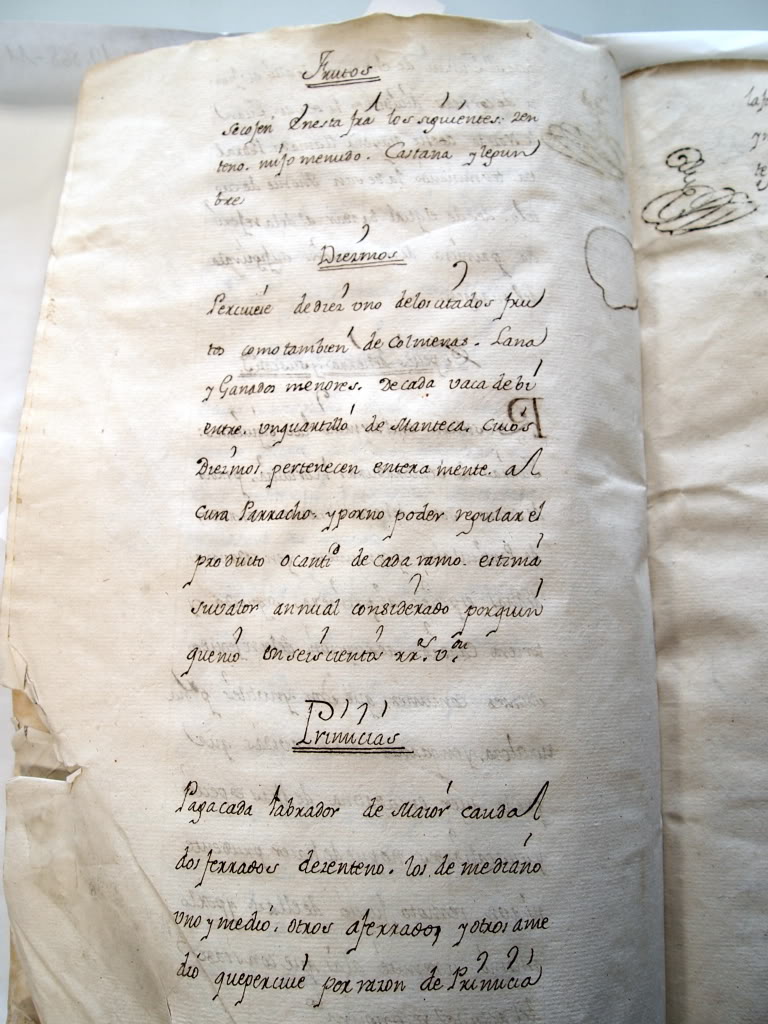 Frutos
Secojen enesta fra los siguientes. Zen
teno. mijo menudo. Castana y legun
bre
Diezmos
Percivese de diez uno delos citados fru
tos como tambien de Colmenas. Lana
y Ganados menores. De cada vaca de bi
entre. un quartillo de Manteca. Cuios
Diezmos pertenecen entera mente. al
Cura Parracho. y porno poder regular el
producto o cantid de cada ramo. estima
su valor annual considerado por quin
quenio en seiscientos rrs. von
Primicias
Paga cada labrador de Maior caudal
dos ferrados de zenteno. los de mediano
uno y medio. otros aferrado, y otros ame
dio que percive por razon de Primicia